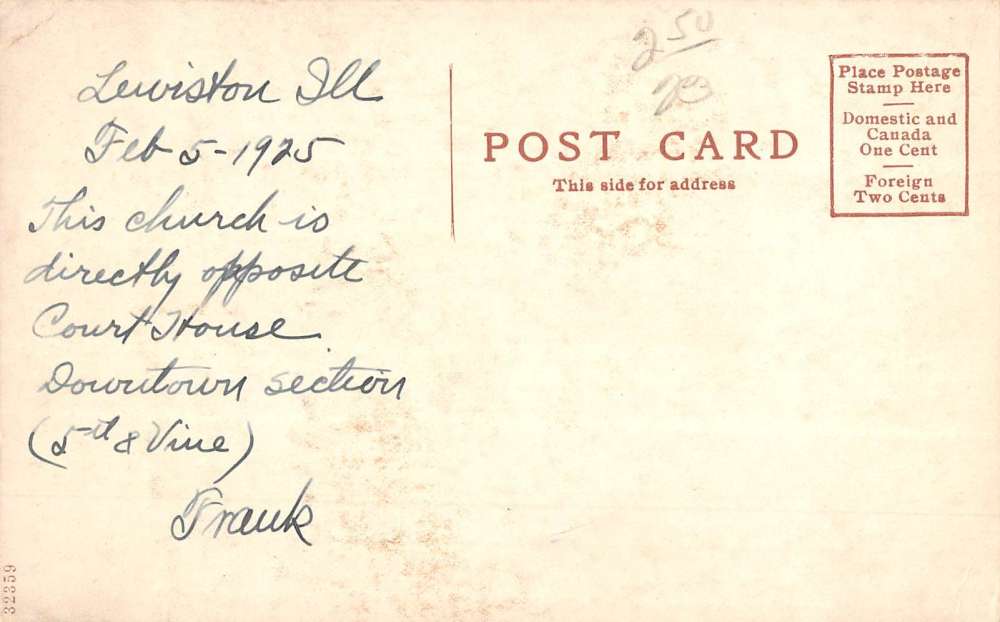 Lewiston Ill
Feb 5-1925
This church is
directly opposite
Court House
Downtown section
(5th & Vine)
Frank
32359
2 50
POST CARD
This side for address
Place Postage
Stamp Here
Domestic and
Canada
One Cent
Foreign
Two Cents